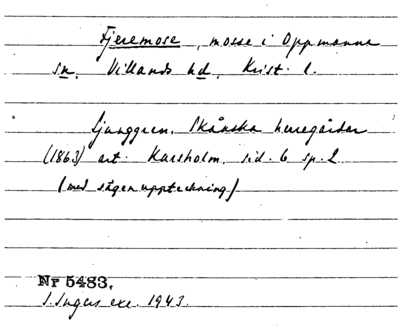 Fjeremose, mosse i Oppmanna
sn, Villands hd, Krist. l.
Ljunggren, Skånska herregårdar
(1863) art. Karsholm, sid. 6 sp. 2
(med sägenuppteckning)
Nr 5483.
I. Ingers exc. 1943.